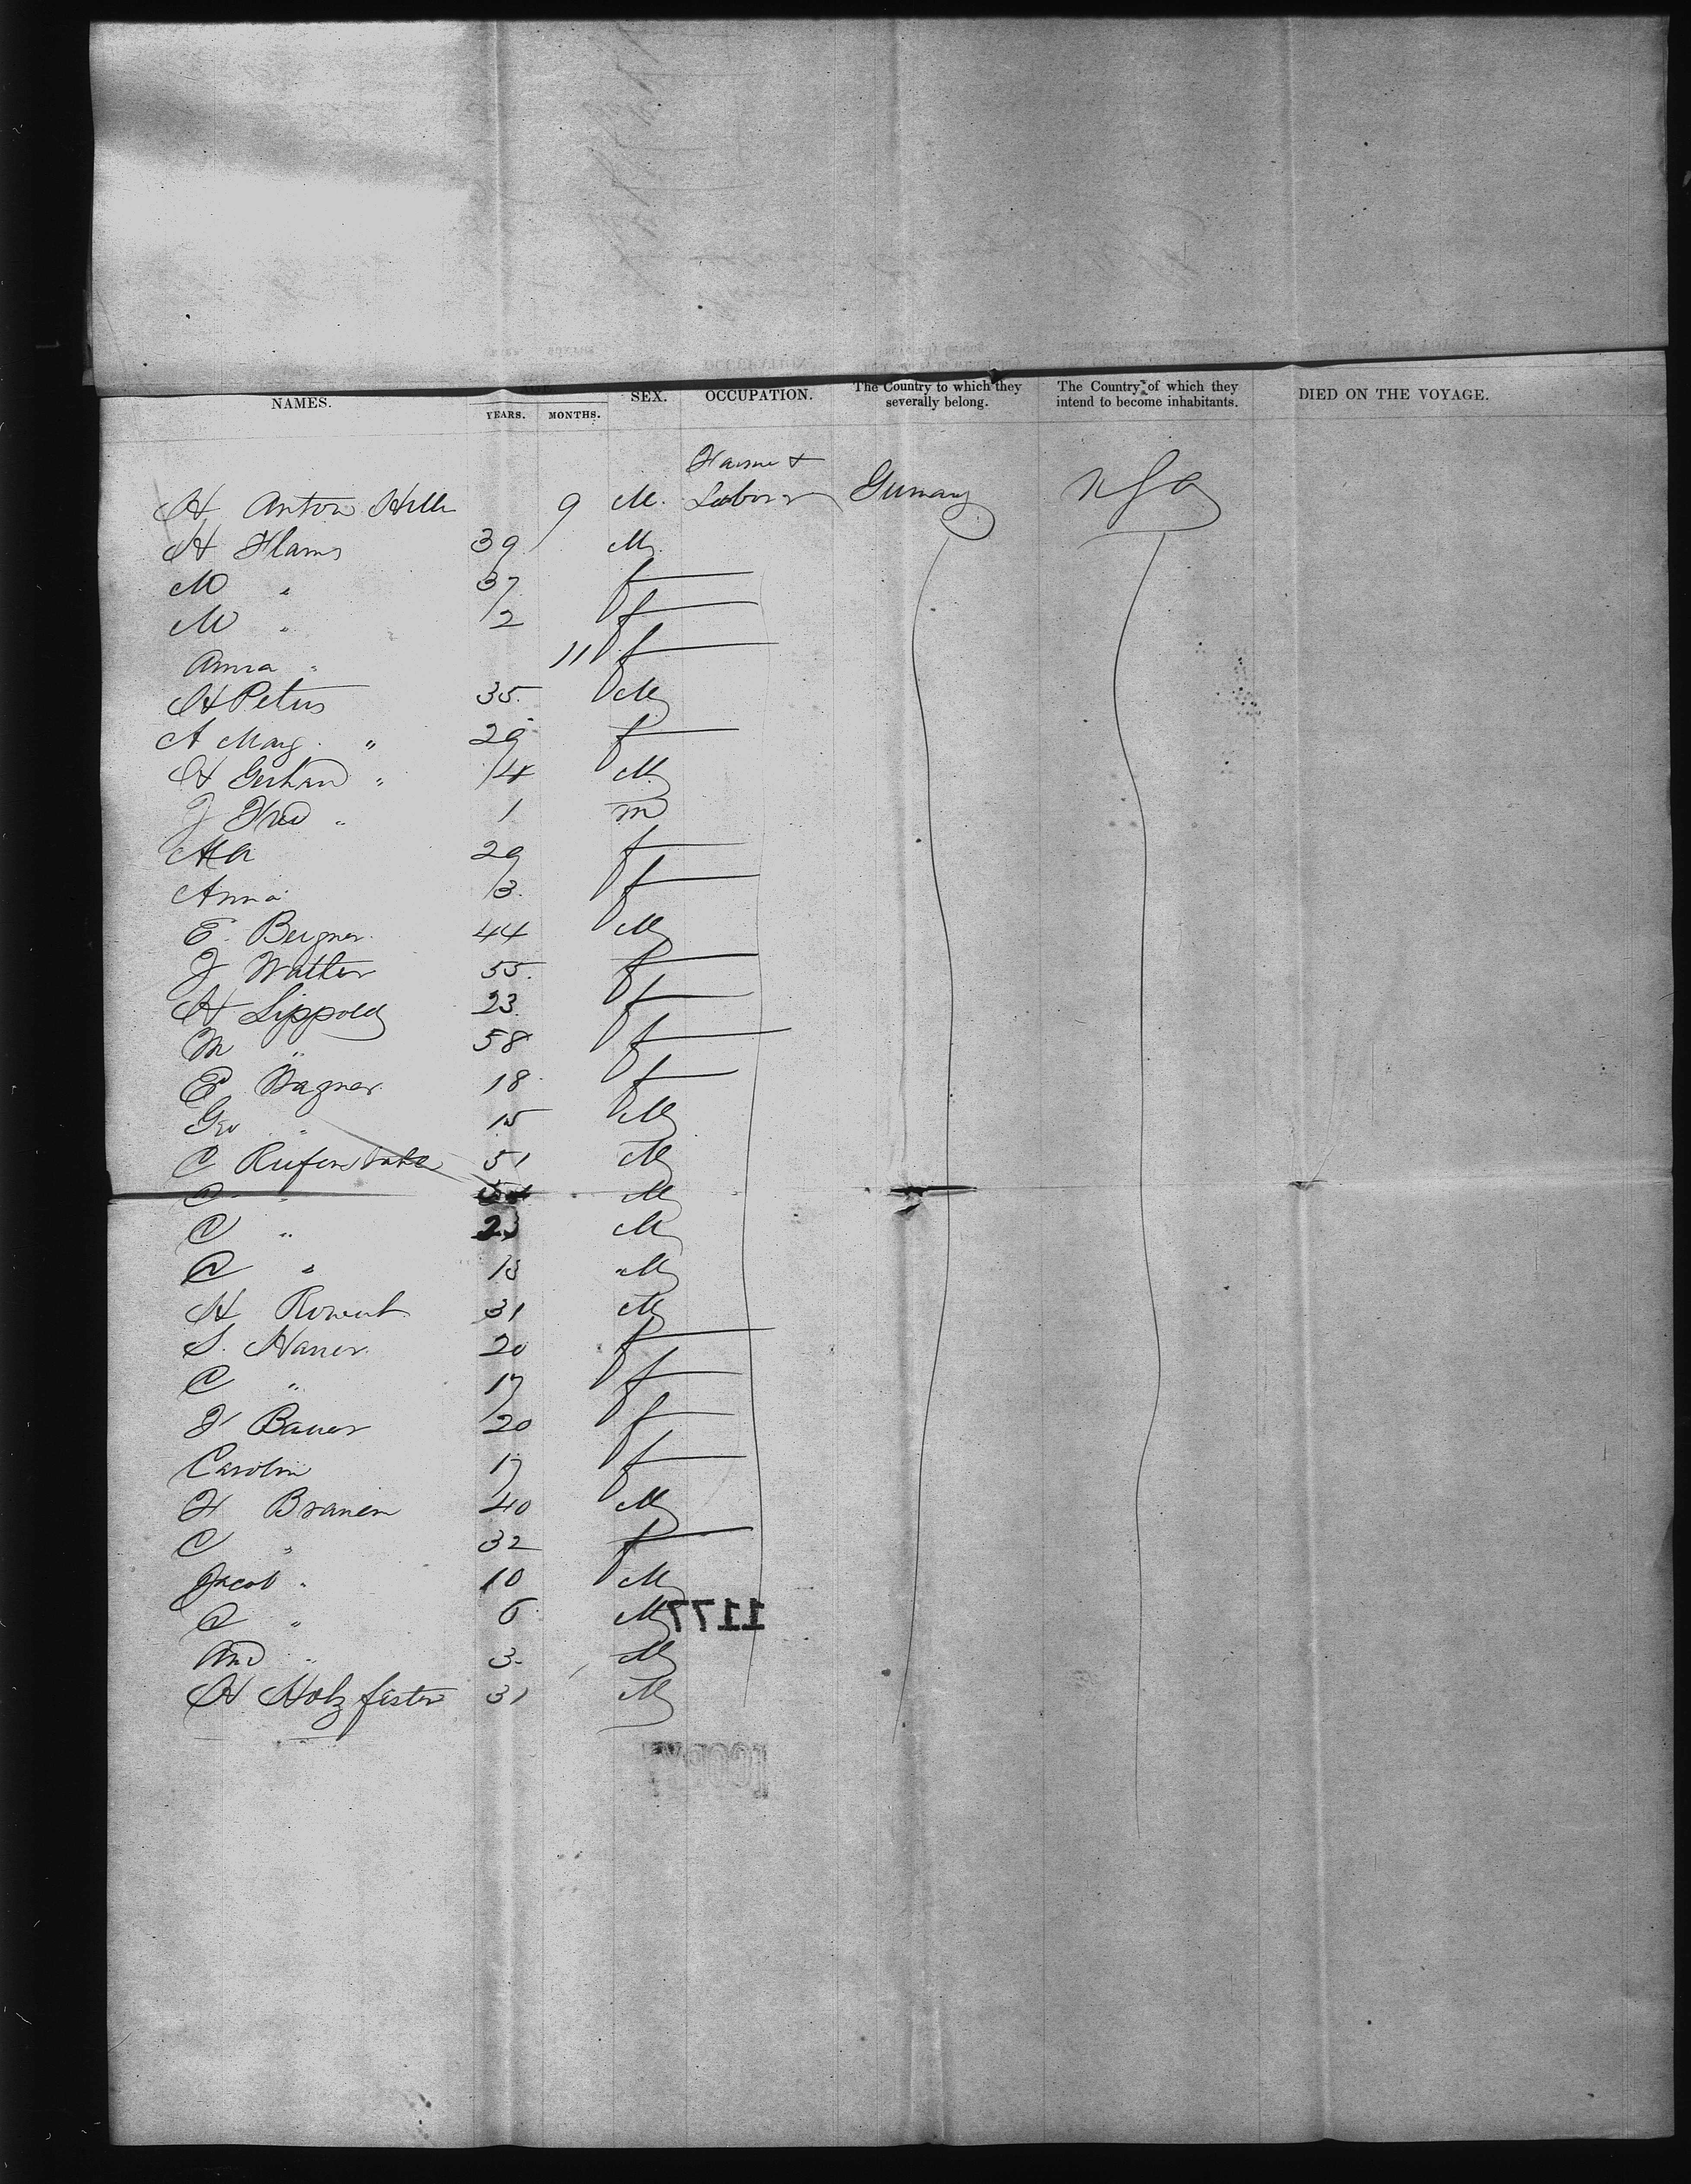 NAMES. YEARS. MONTHS. SEX. OCCUPATION. The Country to which they severally belong. The Country of which they intend to become inhabitants. DIED ON THE VOYAGE.
H Anton Hille 9 M. Labor Germany
H Flams 39 M
M " 37 f
M " 12 f
Anna " 11 f
H Peters 35 M
A Marg " 29 f
H Gerhard " 14 M
J Fred " 1 m
29 f
Anna 13 f
E. Bergner 44 M
J Walther 55 f
H Lippold 23 f
M " 58 f
E Wagner 18 f
Geo " 15 M
C 51 M
" M
C " 23 M
C " 13 M
H 31 M
S. Hauer 20 f
C " 17 f
F Bauer 20 f
Carolin 17 f
H 40 M
C " 32 f
Jacob " 10 M
C " 6 M
And " 3 M
H Holzfaster 31 M
1177